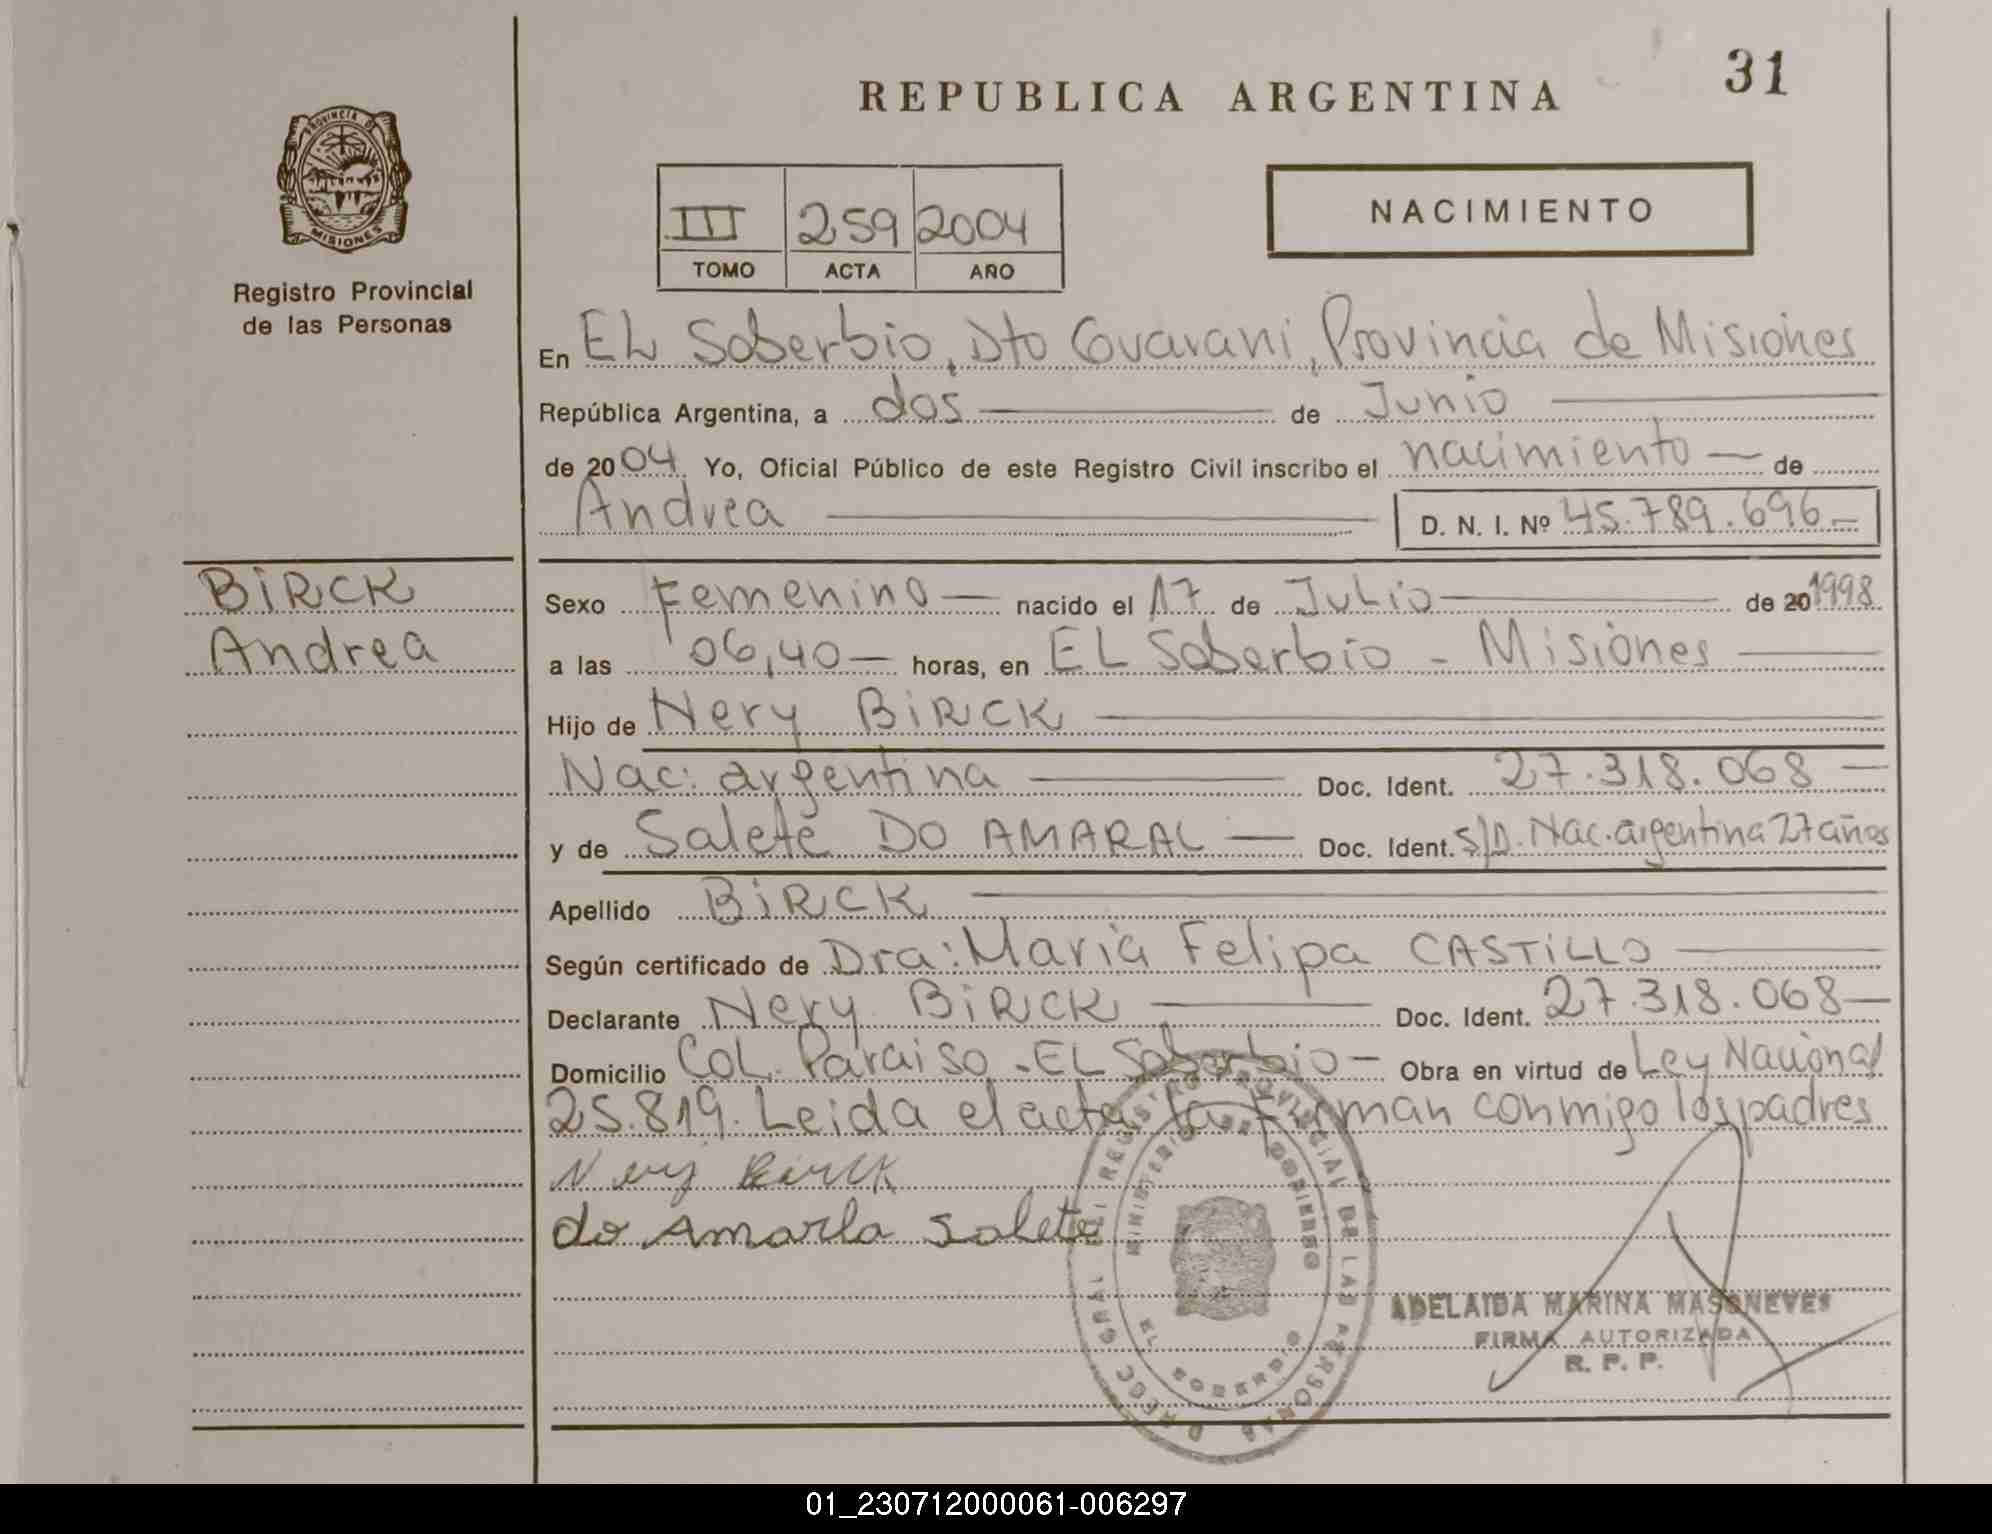 31
REPUBLICA ARGENTINA
PROVINCIA DE
MISIONES
Registro Provincial
de las Personas
III 259 2004
TOMO ACTA AÑO
NACIMIENTO
En EL Soberbio, Dto Guarani, Provincia de Misiones
República Argentina, a dos de Junio
de 2004 Yo, Oficial Público de este Registro Civil inscribo el nacimiento de
Andrea D. N. I. Nº 45.789.696
BIRCK
Andrea
Sexo Femenino nacido el 17 de Julio de 20 1998
a las 06,40 horas, en EL Soberbio - Misiones
Hijo de Nery BIRCK
Nac: argentina Doc. Ident. 27.318.068
y de Salete DO AMARAL Doc. Ident. S/D. Nac. argentina 27 años
Apellido BIRCK
Según certificado de Dra: Maria Felipa CASTILLO
Declarante Nery BIRCK Doc. Ident. 27.318.068
Domicilio Col. Paraiso - EL Soberbio - Obra en virtud de Ley Nacional
25.819. Leida el acta la firman conmigo los padres
Nery Birck
do Amarla Salete
REGISTRO PROVINCIAL DE LAS PERSONAS
MINISTERIO DE GOBIERNO
EL SOBERBIO
ADELAIDA MARINA MASONEVES
FIRMA AUTORIZADA
R. P. P.
01_230712000061-006297